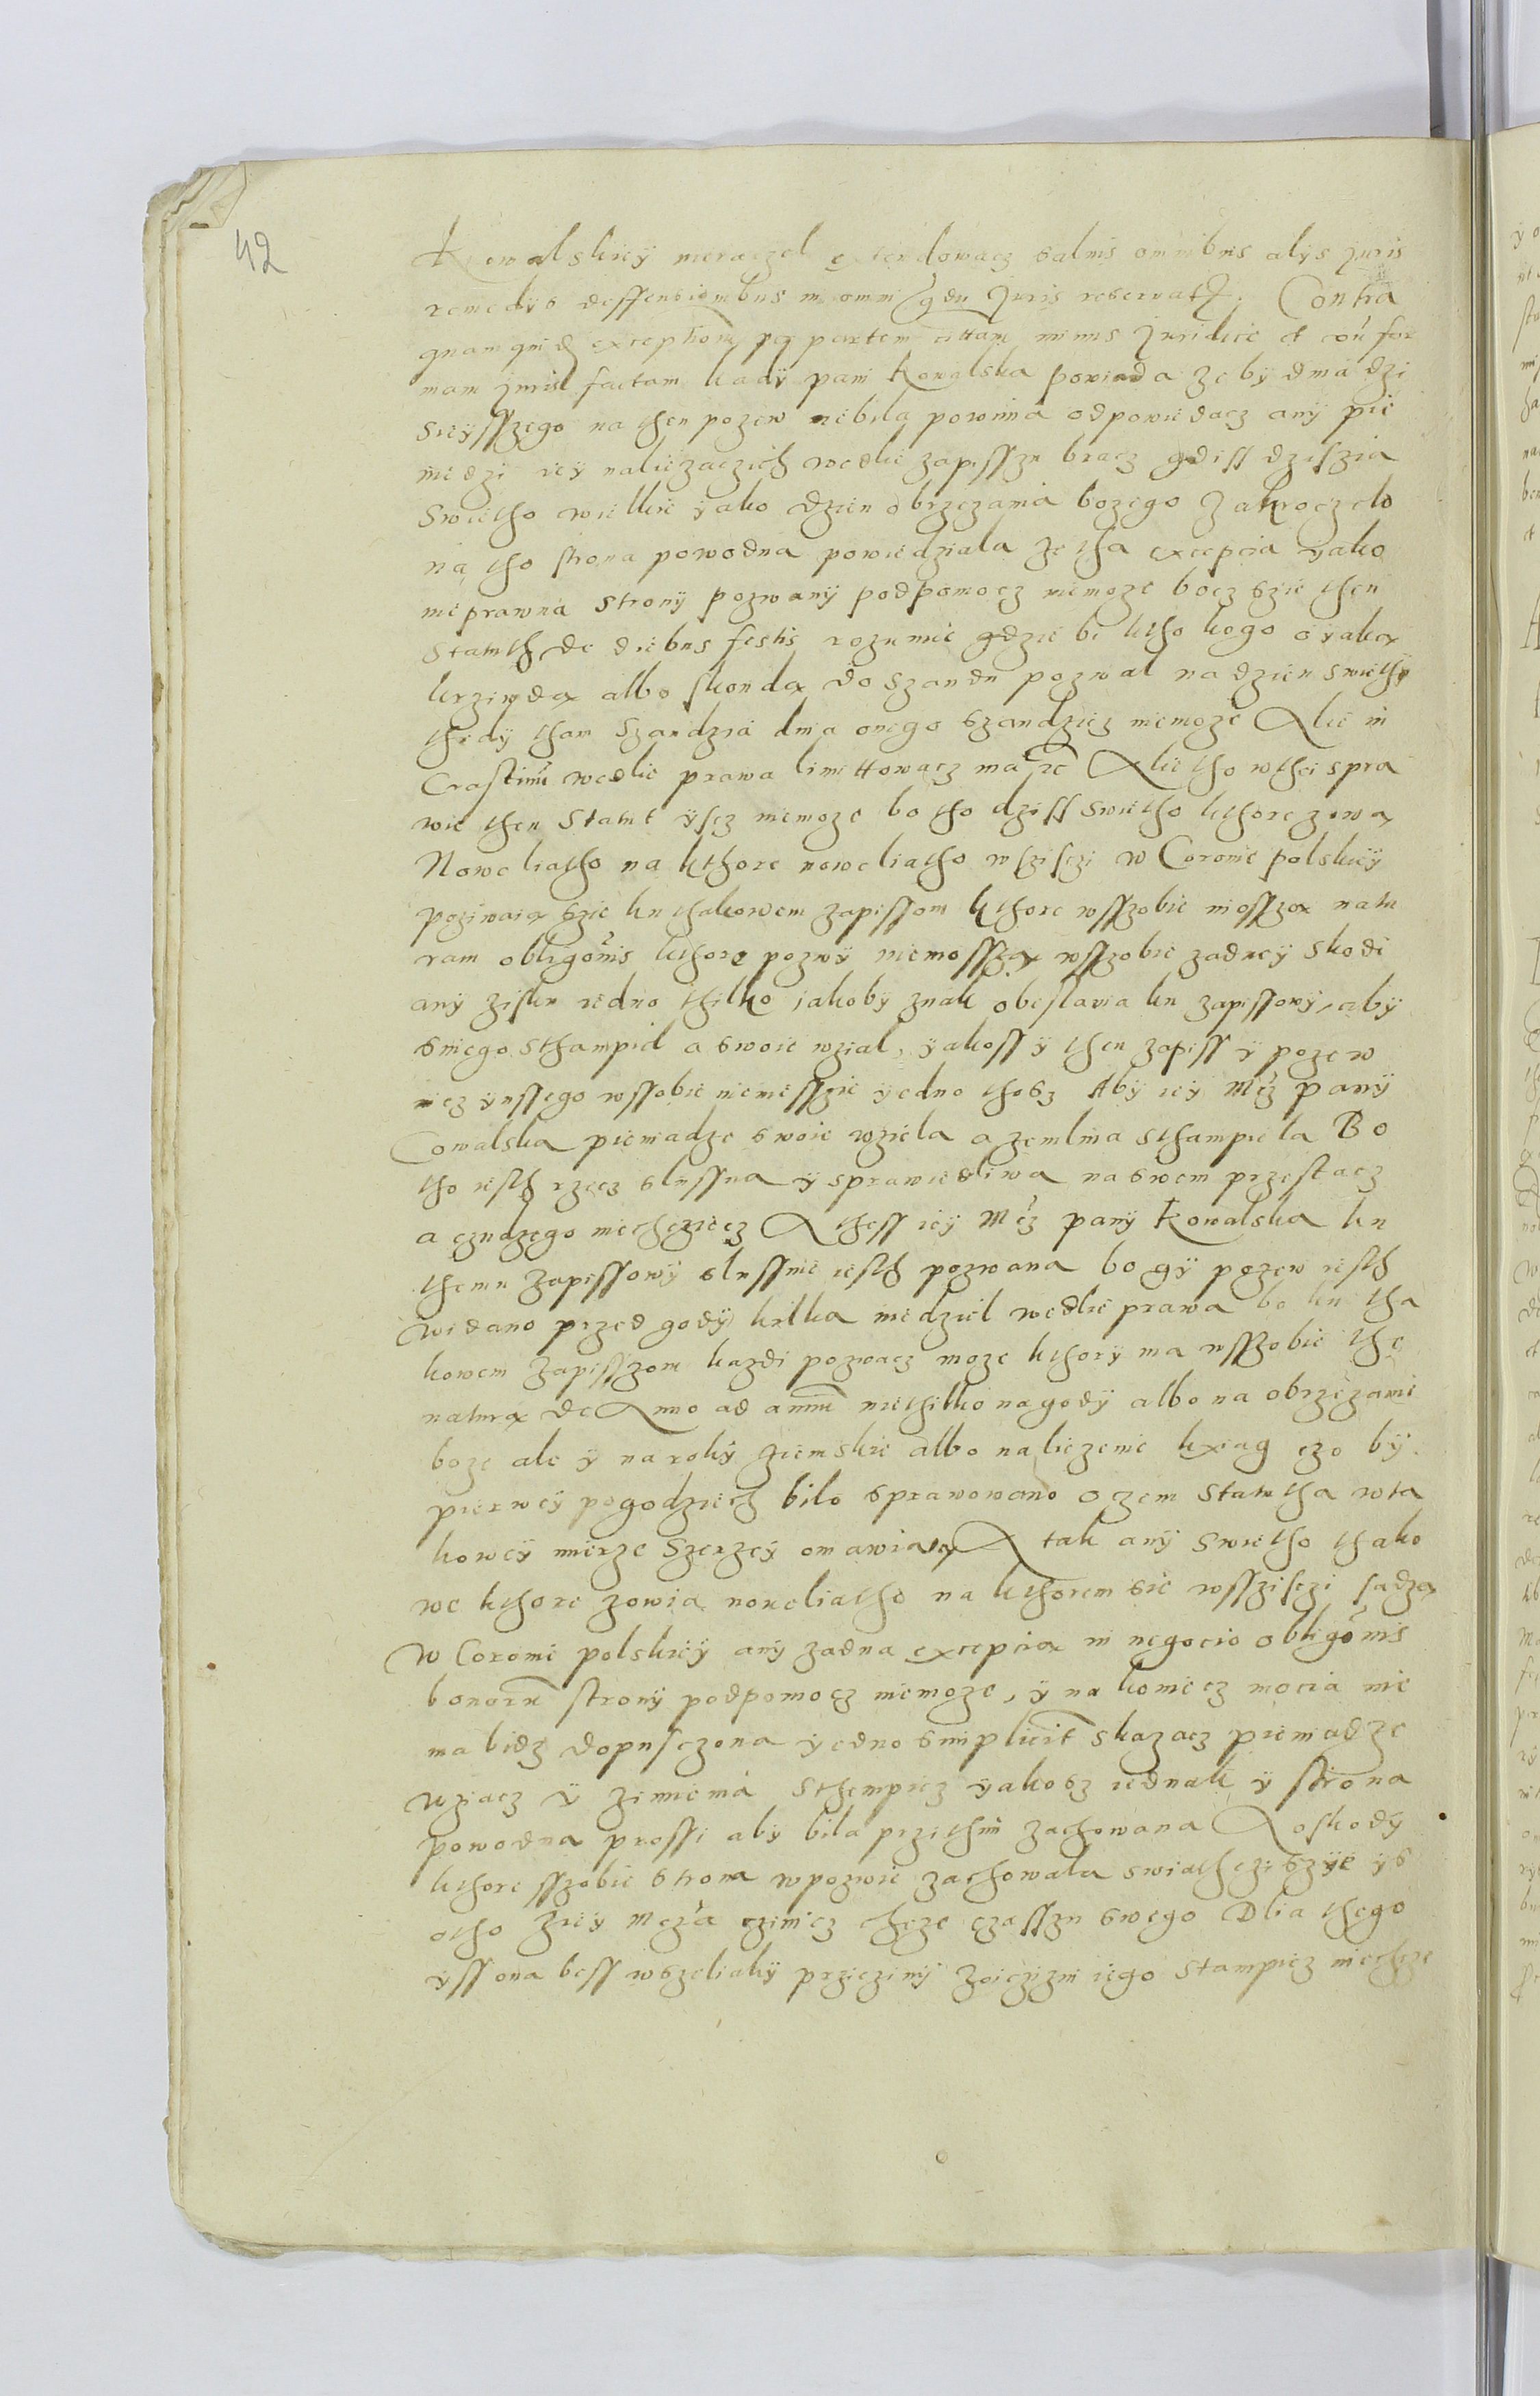 42
Kowalskieÿ nieraczel extendowacz salvis omnibus alÿs Juris
remedÿs deffensionibus in omni gdu Juris reservatis. Contra
quamquid exceptionem per partem cittatam minus Juridice et contra for
mam Juris factam kadÿ pani Kowalska powiada ze bÿ dnia dzi
sieÿsszego na then pozew niebila powinna odpowiedacz anÿ pie
niedzi ieÿ naliezaczich wedlie zapisszu bracz gdiss dziszia
Swietho wielkie ÿako dzien obrzezania bozego Zakroczelo
na tho strona powodna powiedziala ze tha excepcia ÿako
nieprawna Stronÿ pozwanÿ podpomocz niemoze bocz szie then
Statuth de diebus festis rozumie gdzie bi ktho kogo o ÿaka
krziwda albo skonda do szandu pozwal na dzien swiethÿ
thedÿ tham Szandzia dnia onego szandzicz niemoze Alie in
Crastinum wedlie prawa limittowacz ma etc Alie tho wthei spra
wie then Statut ÿscz niemoze bo tho dziss swietho kthore zowa
Noweliatho na kthore noweliatho wszisczi w Coronie polskieÿ
poziwaia szie ku thakowem zapissom kthore wsszobie niossza natu
ram obligonis kthore pozwÿ niemossza wsszobie zadneÿ skodi
anÿ zisku iedno thilko iakobÿ znak obeslania ku zapissowÿ, abÿ
sniego sthampiel a swoie wzial, ÿakoss ÿ then zapiss ÿ pozew
nicz ÿnssego wssobie niemiesszie ÿedno thosz Abÿ ieÿ Mcz panÿ
Cowalska pieniadze swoie wziela a zemlina sthampiela Bo
tho iesth rzecz slussna ÿ sprawiedliwa na swem przestacz
a czudzego niechcziecz A thess ieÿ Mcz panÿ Kowalska ku
themu zapissowÿ slussnie iesth pozwana bo gÿ pozew iesth
widano przed godÿ kilka niedziel wedlie prawa bo ku tha
kowem zapisszom kazdi pozwacz moze kthorÿ ma wsszobie the
natura de Anno ad annum niethilko na godÿ albo na obrzezanie
boze ale ÿ na rokÿ ziemskie albo na liezenie kxiag czo bÿ
pierweÿ pogodziech bilo sprawowano o czem Statutha wta
koweÿ mierze Szerzeÿ omawiaia A tak anÿ Swietho thako
we kthore zowia noweliatho na kthorem sie wsszisczi sadza
W Coronie polskieÿ anÿ zadna excepcia in negocio obligonis
bonorum stronÿ podpomocz niemoze, ÿ na koniecz mocia nie
ma bidz dopusczona ÿedno simpliciter skazacz pieniadze
wziacz ÿ zimienia Sthempicz ÿakosz iednak ÿ strona
powodna prossi abÿ bila przithim zachowana A o skodÿ
kthore sszobie strona wpozwie zachowala swiathczi szÿe ÿs
otho zieÿ Mcza czinicz chcze czasszu swego Dlia thego
ÿss ona bess wszeliakÿ prziczinÿ zoiczizni iego Stampicz niechcze